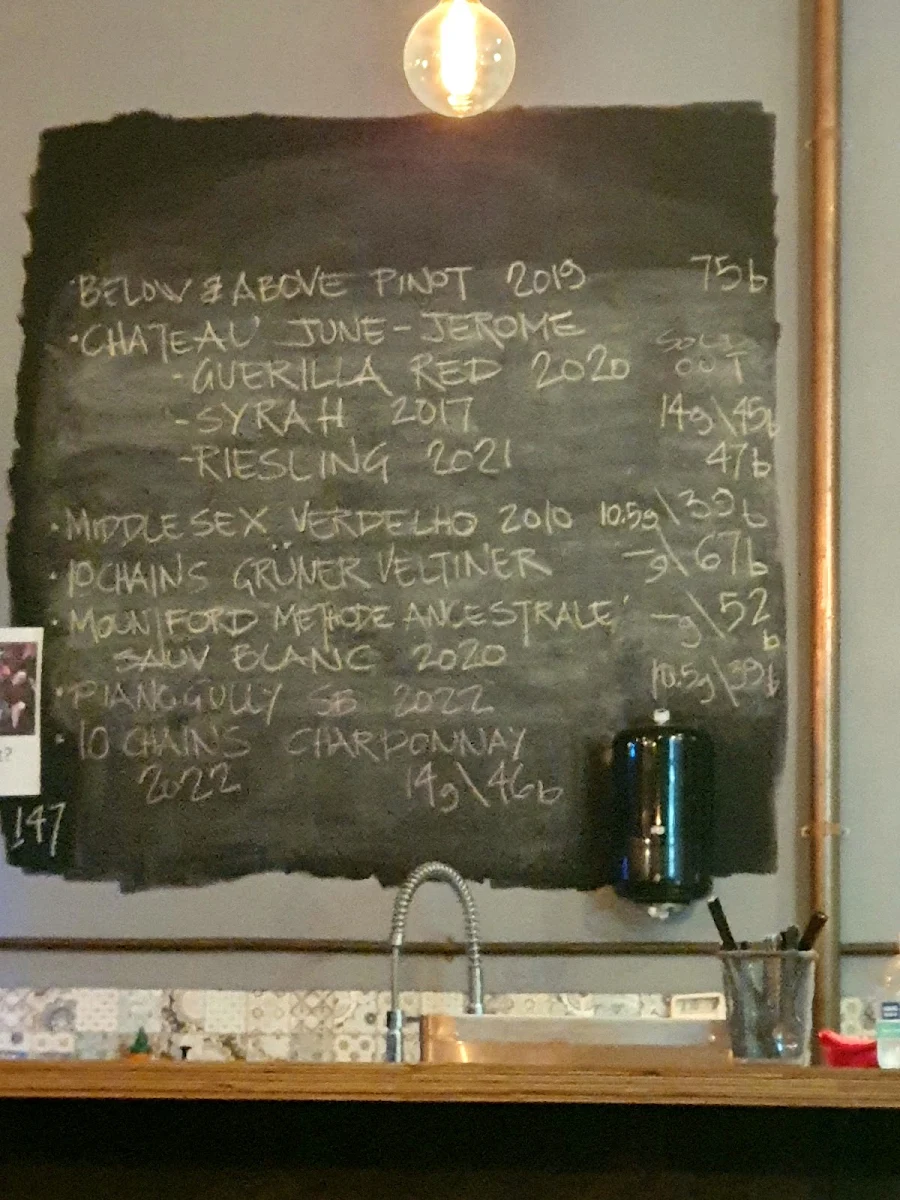 ·BELOW & ABOVE PINOT 2019 75b
·CHATEAU JUNE-JEROME
-GUERILLA RED 2020 SOLD OUT
-SYRAH 2017 14g\45b
-RIESLING 2021 47b
·MIDDLESEX VERDELHO 2010 10.5g\39b
·10CHAINS GRÜNER VELTINER -g\67b
·MOUNTFORD METHODE ANCESTRALE' -g\52b
SAUV BLANC 2020
·PIANOGULLY SB 2022 10.5g\39b
·10 CHAINS CHARDONNAY
2022 14g\46b
147